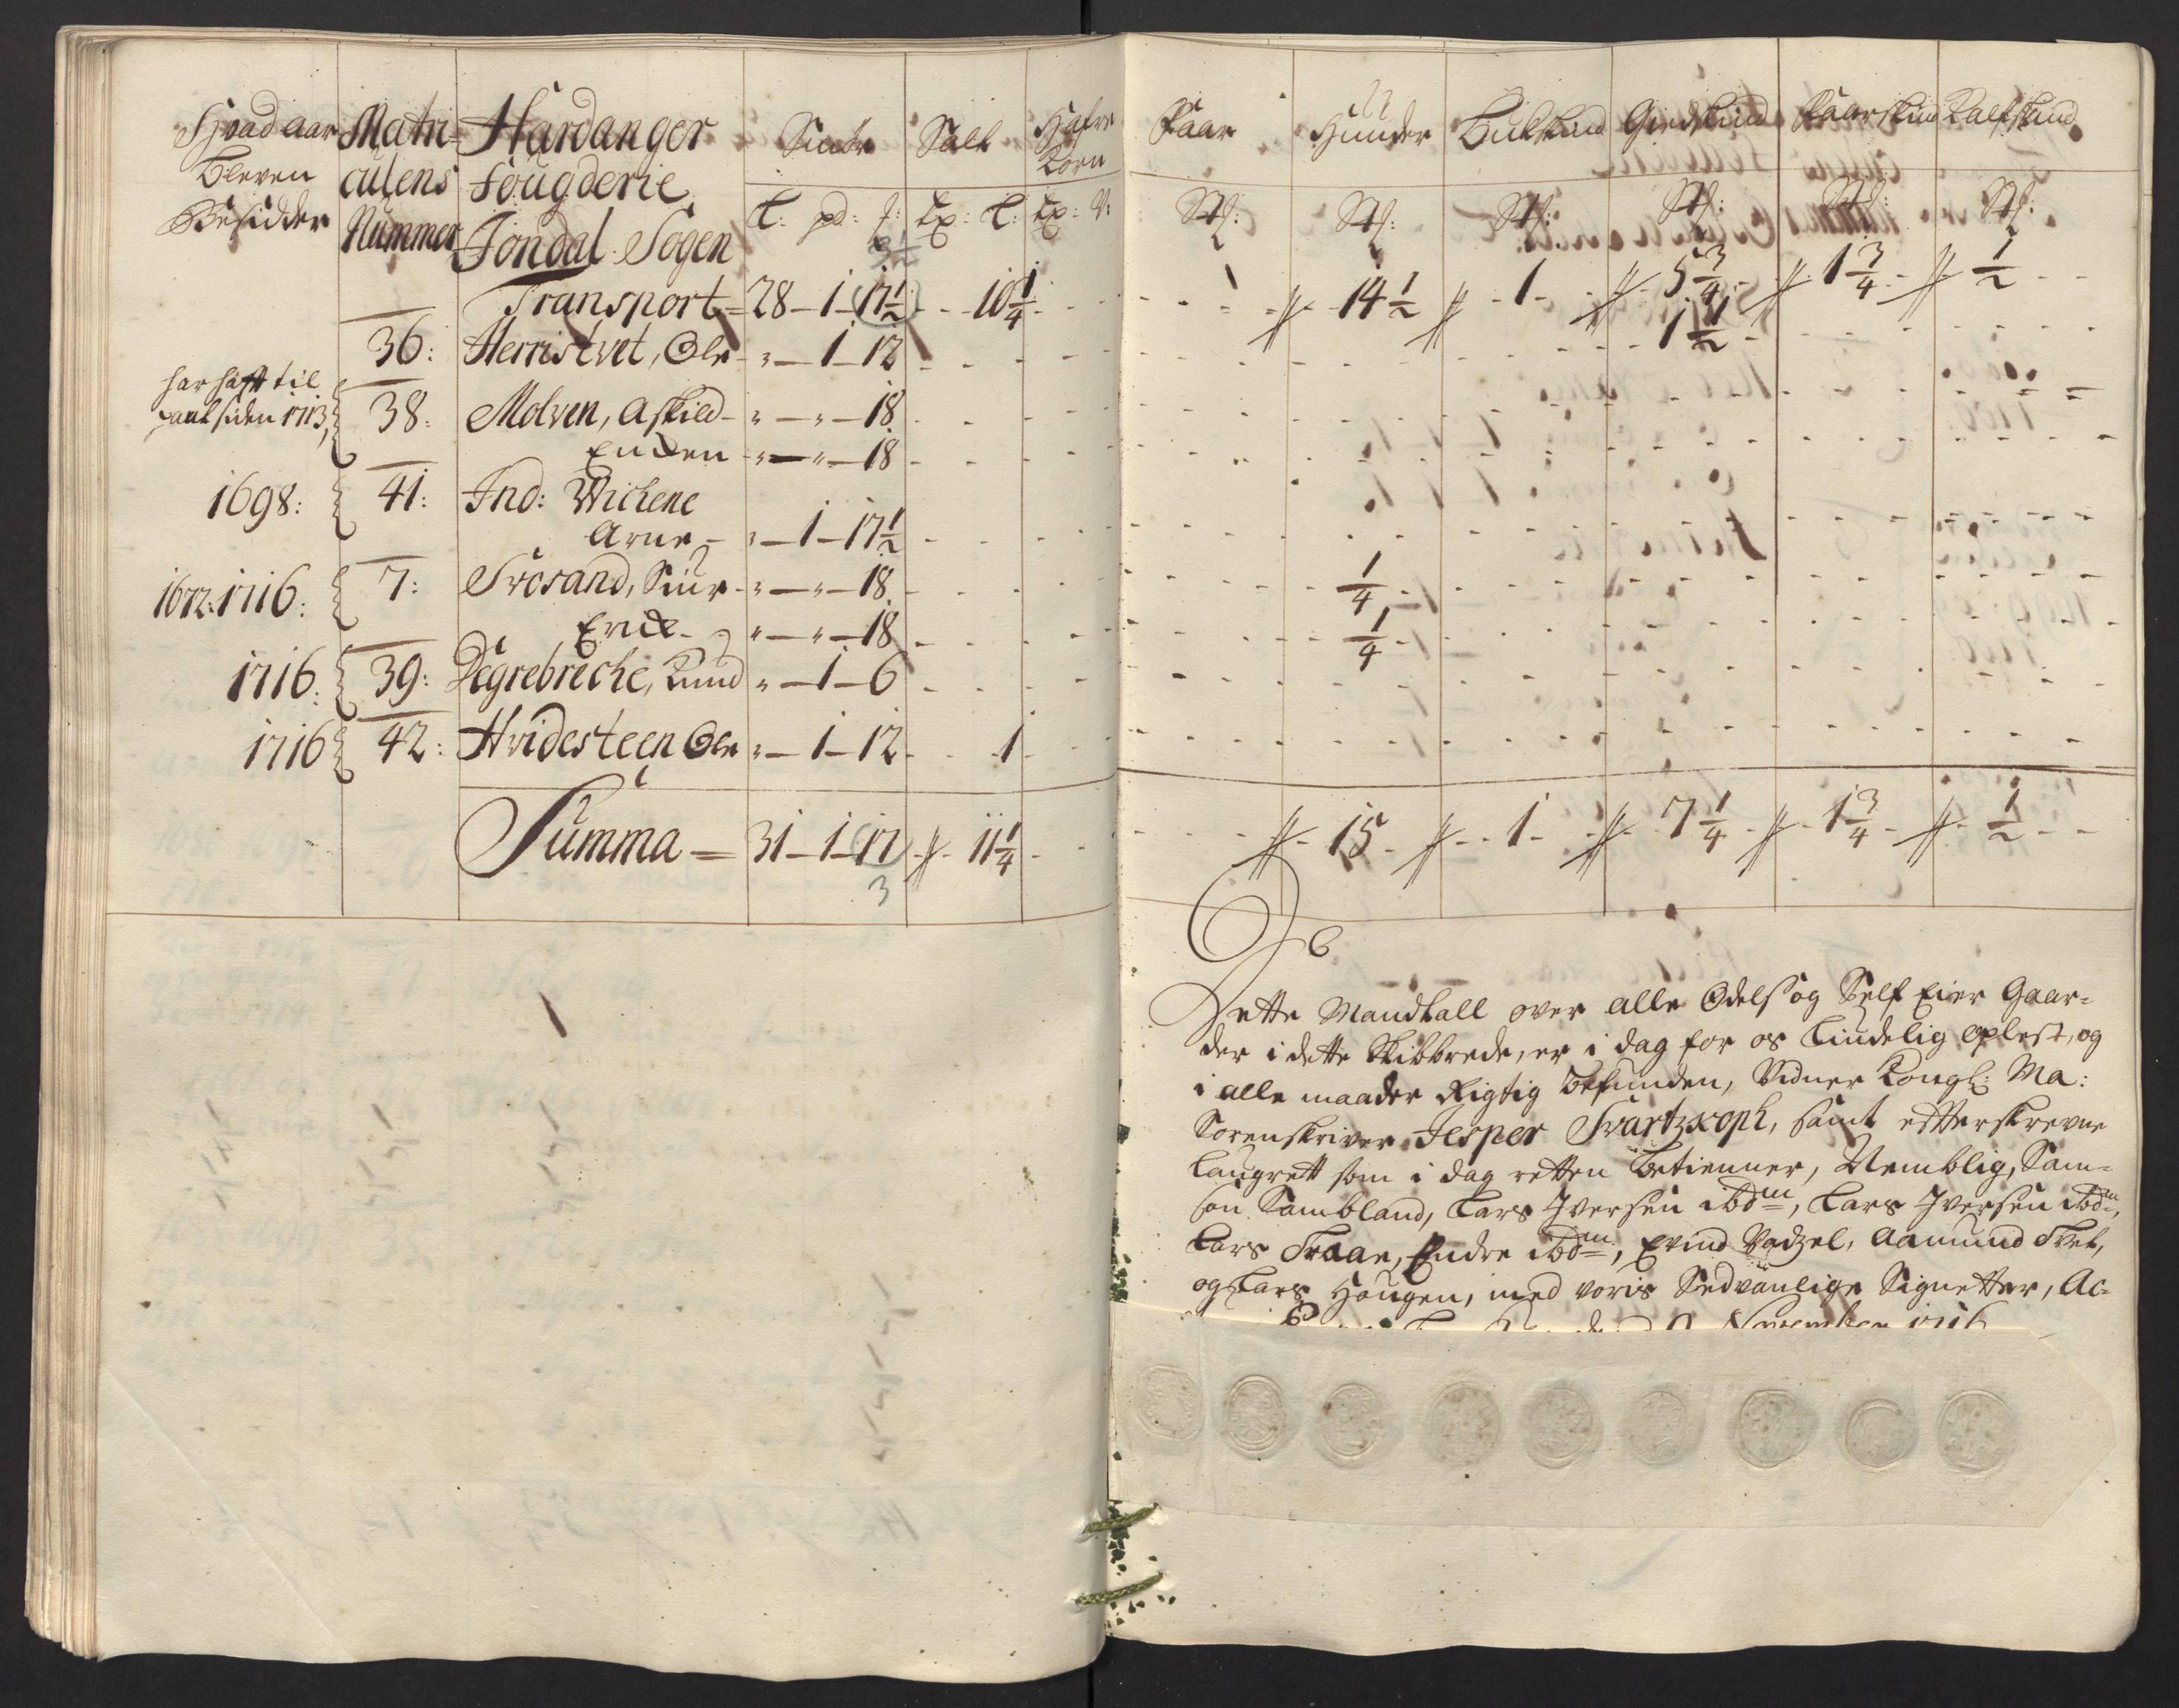 Hvad aar
Bleven
Besidder
Matri-
culens
Nummer
Hardanger
Fougderie
Jondal Sogen
Smør
L: pd: :
Salt
Tp: L:
Hafre
Korn
Tp: V:
Faar
Stk:
Hunder
Stk:
Bukskind
Stk:
Giedskind
Stk:
Faarskind
Stk:
Kalfskind
Stk:
3 1/2
Transport = 28 – 1 – 17 1/2 - - 10 1/4 - - - 14 1/2 - 1 - 5 3/4 - 1 3/4 - 1/2 - -
36: Herristvet, Ole - " – 1 – 12 - - - 1 1/2 -
har haft til
pant siden 1713, 38: Molven, Askild - " – " – 18
Enden - " – " – 18
1698: 41: Ind: Wichene
Arne - " – 1 – 17 1/2
1672: 1716: 7: Svosand, Siur - " – " – 18 - - 1/4 -
Erik - " – " – 18 - - 1/4 -
1716: 39: Degrebreche, Knud " – 1 – 6
1716 42: Hvidesteen Ole " – 1 – 12 - - 1
Summa = 31 – 1 – 17 - 11 1/4 - - 15 - 1 - 7 1/4 - 1 3/4 - 1/2 - -
3
Dette Mandtall over alle Odels og Self Eier Gaar-
der i dette Skibbrede, er i dag for os tindelig oplest, og
i alle maader Rigtig befunden, Vidner Kongl: Ma:
Sorenskriver Jesper Svartzkoph, samt efterskrevne
Laugrett som i dag retten betienner, Nemblig, Sam-
son Sambland, Lars Iversen ibdm, Lars Iversen ibdm,
Lars Traae, Endre ibdm, Evind Aamund Tvet,
og Lars Hougen, med voris Sedvanlige Signetter, Ac-
November 1716